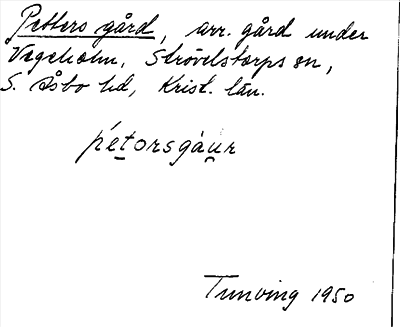 Petters gård, arr. gård under
Vegeholm, Strövelstorps sn,
S. Åsbo hd, Krist. län.
pétorsgáur
Tunving 1950